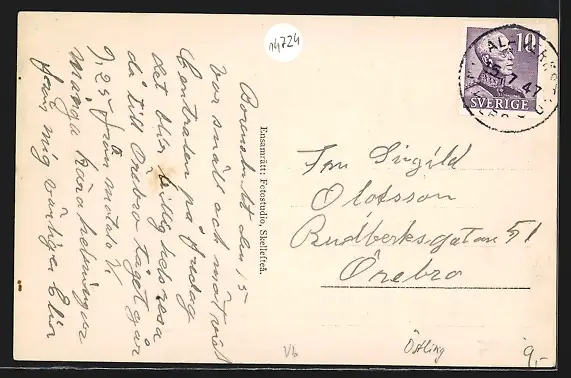 14724
Boonstultet den 15
var snäll och möt vid
Centralen på fredag
det blir billig hos resa
då till Örebro tåget går
9,25 från motala V.
många kära hälsningar
från mig
Ensamrätt: Fotostudio, Skellefteå.
10
SVERIGE
15.7.47
Fru Sigrid
Olofsson
Rudbecksgatan 51
Örebro
Vb
Östling
9,-